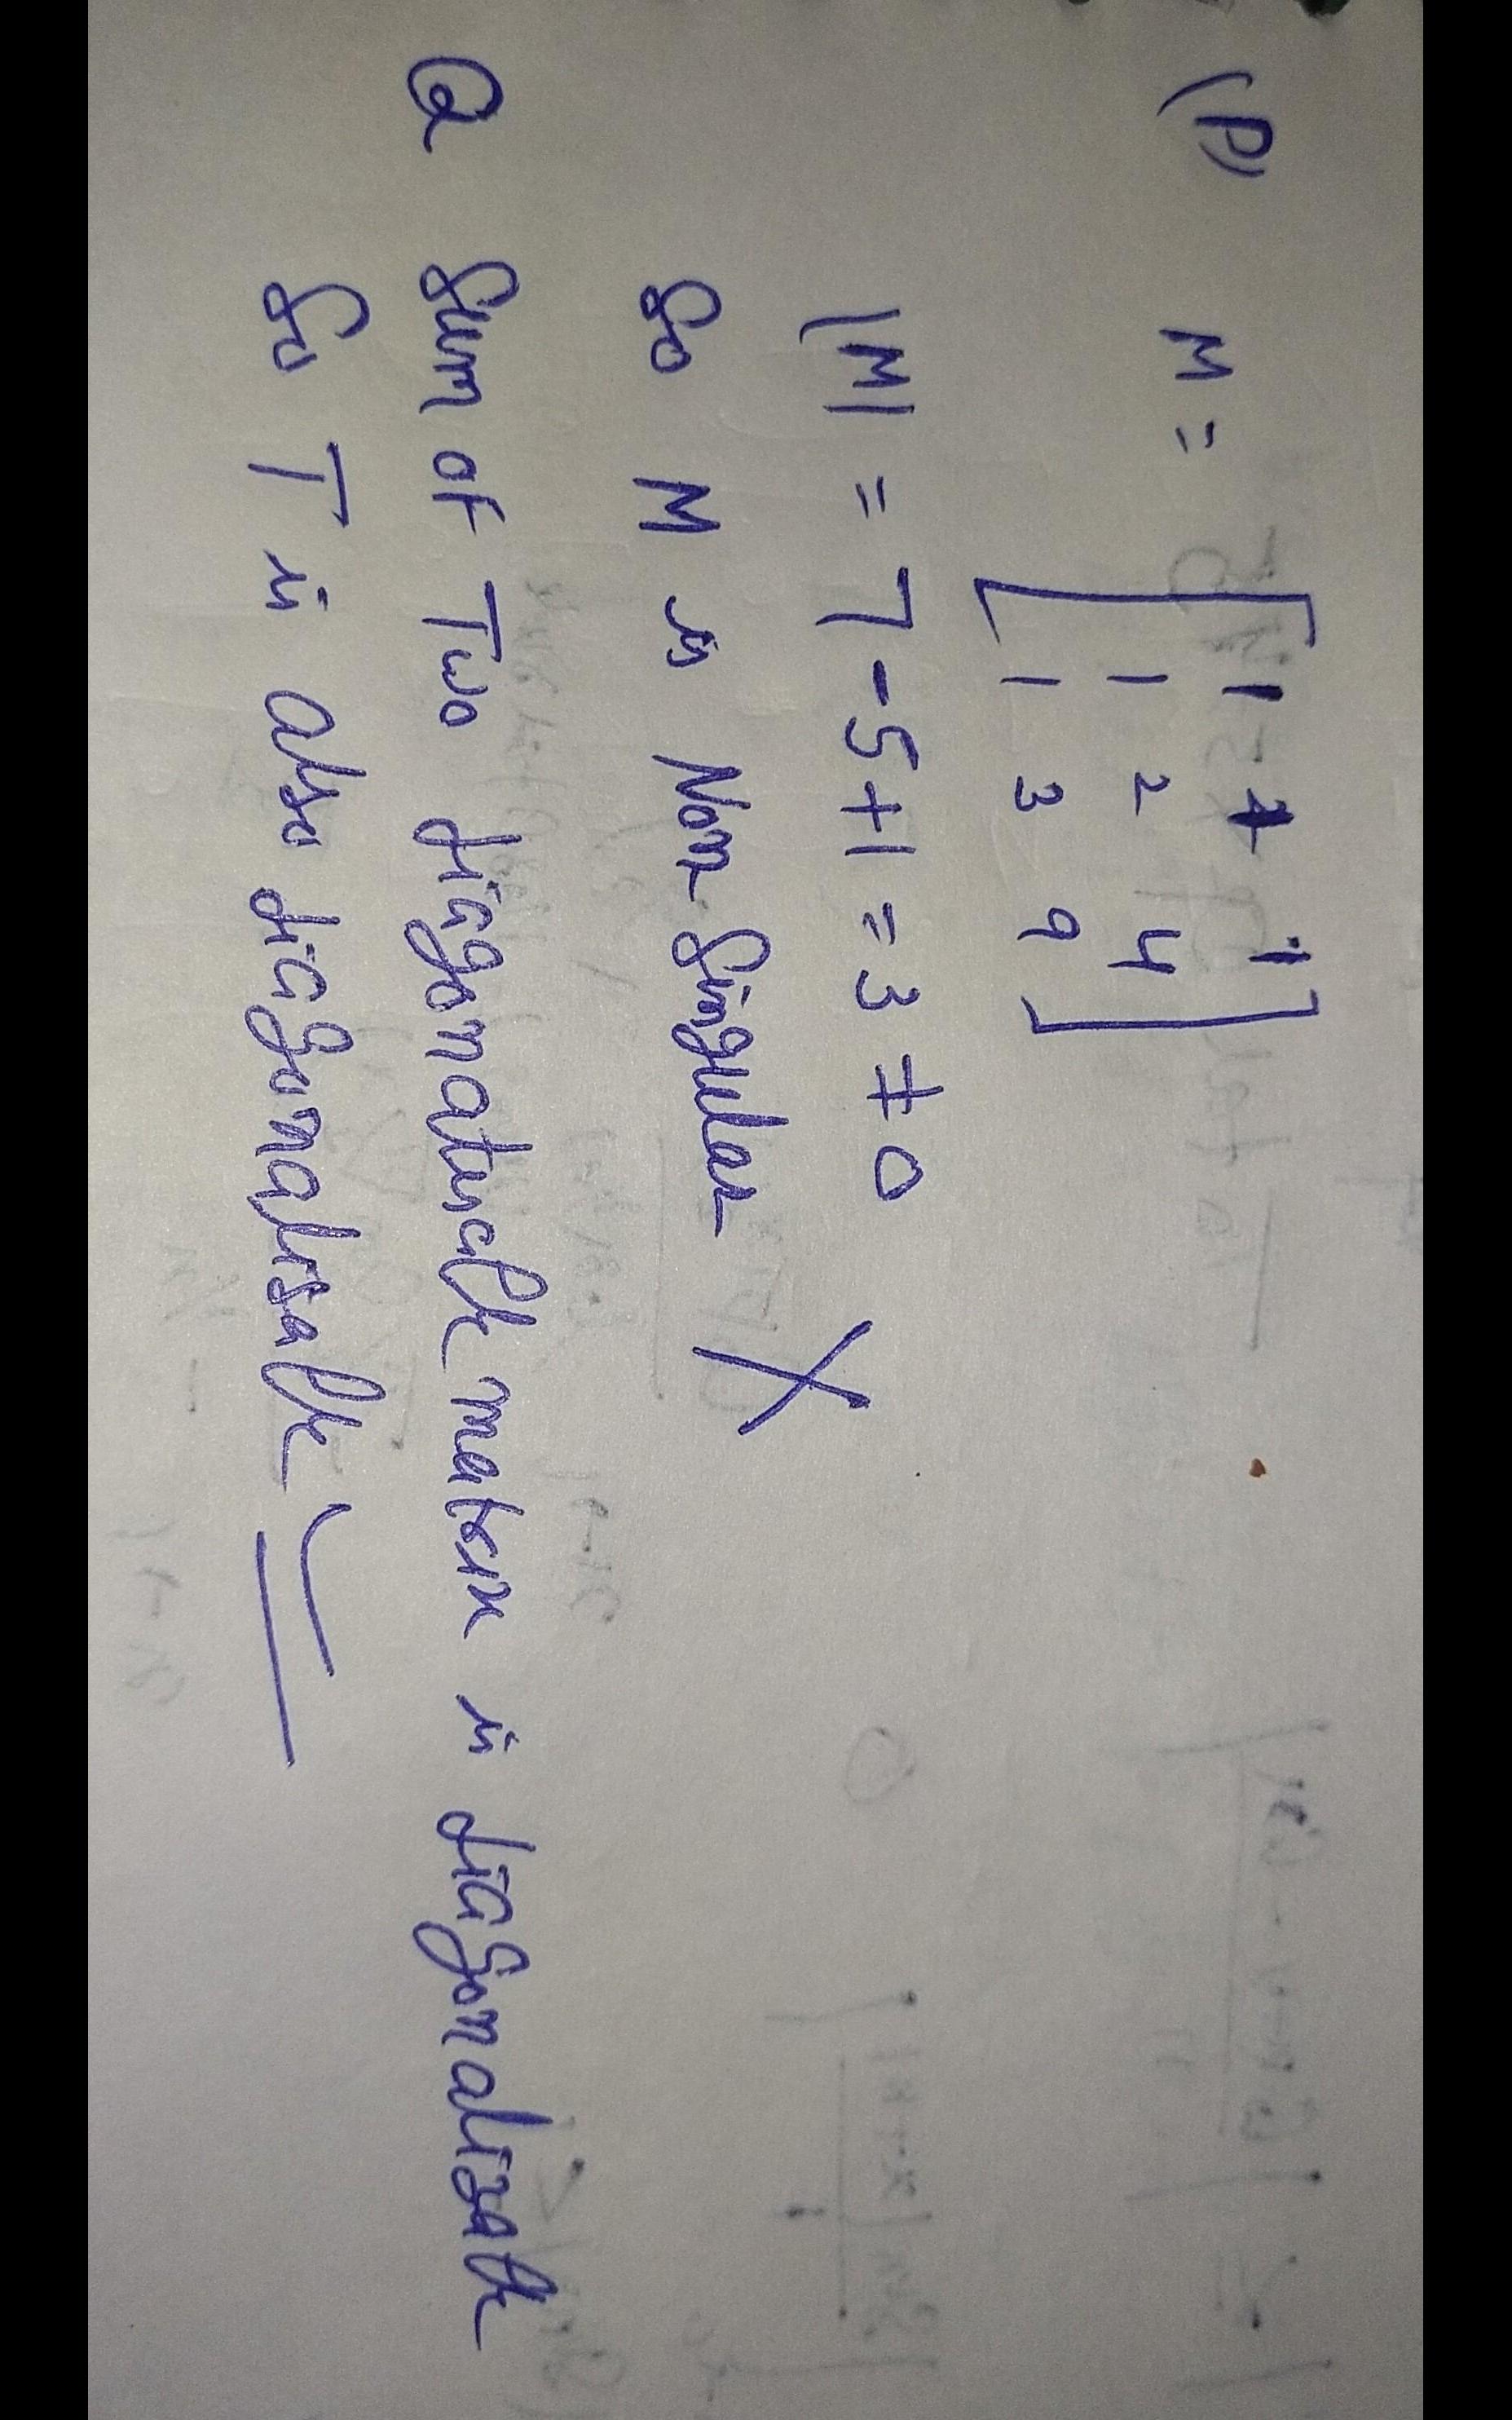 (P) M = [ 1 1 1
1 2 4
1 3 9 ]
|M| = 7-5+1 = 3 ≠ 0
So M is Non-Singular X
Q Sum of Two matrix is diagonalizable
So T is also diagonalisable